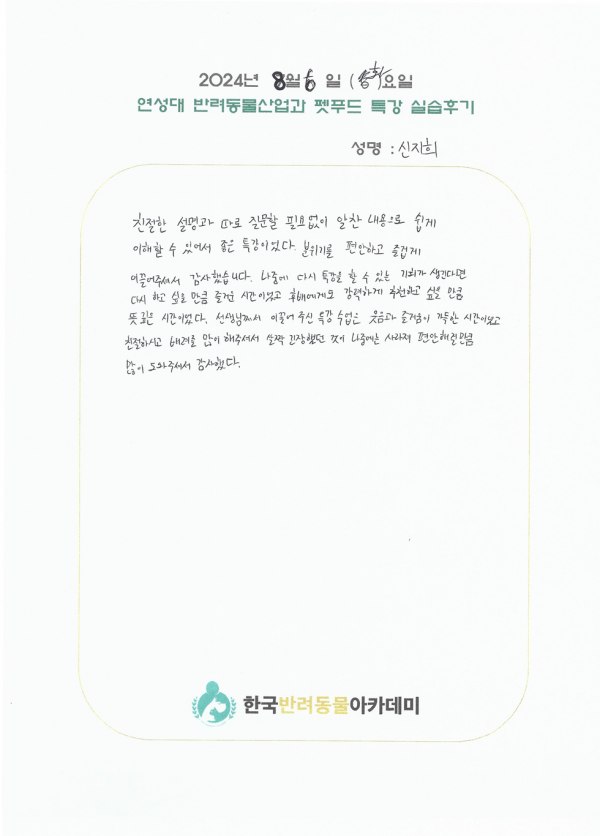 2024년 8월 6일 (화)요일
연성대 반려동물산업과 펫푸드 특강 실습후기
성명 : 신지희
친절한 설명과 따로 질문할 필요없이 알찬 내용으로 쉽게
이해할 수 있어서 좋은 특강이었다. 분위기를 편안하고 즐겁게
이끌어주셔서 감사했습니다. 나중에 다시 특강을 할 수 있는 기회가 생긴다면
다시 하고 싶을 만큼 즐거운 시간이었고 후배에게도 강력하게 추천하고 싶을 만큼
뜻깊은 시간이었다. 선생님께서 이끌어 주신 특강 수업은 웃음과 즐거움이 가득한 시간이었고
친절하시고 배려를 많이 해주셔서 살짝 긴장했던 것이 나중에는 사라져 편안해질만큼
많이 도와주셔서 감사했다.
한국반려동물아카데미